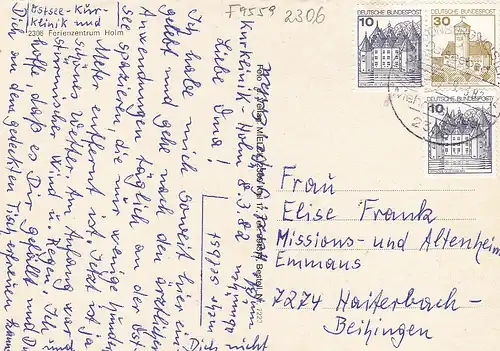 F9559 2306
Ostsee-Kur-
Klinik und
2306 Ferienzentrum Holm
DEUTSCHE BUNDESPOST
10
DEUTSCHE BUNDESPOST
30
DEUTSCHE BUNDESPOST
10
Kurklinik-Holm 8.3.82
Liebe Oma!
Ich habe mich soweit hier ein-
gelebt und gehe nach den ärztlichen
Anwendungen täglich an der Ost-
see spazieren, die nur wenige hundert
Meter entfernt ist. Jetzt ist ja
schönes Wetter. Am Anfang war
stürmischer Wind u. Regen. Ich
hoffe, daß es Dir gefällt und Du
Dich an dem gedeckten Tisch erfreuen kannst
Dich nicht
mehr selbst
Frau
Elise Frank
Missions- und Altenheim
Emmaus
7274 Haiterbach-
Beihingen